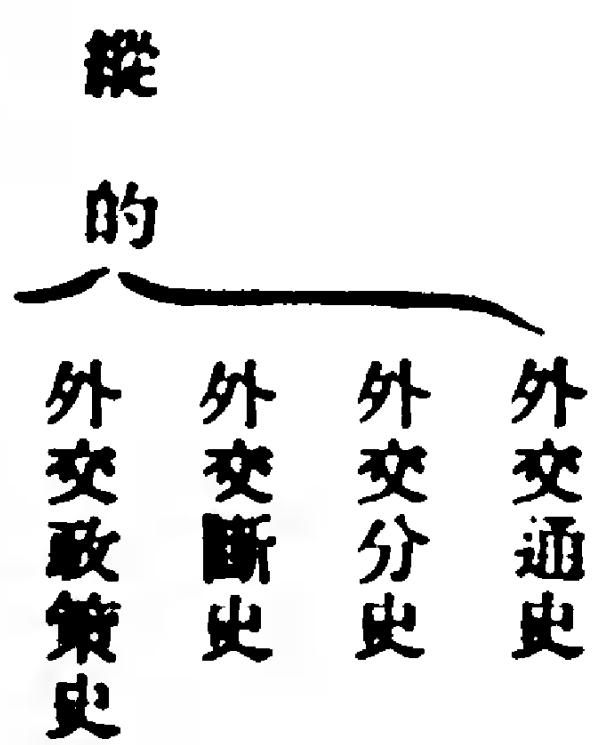 縱的
外交通史
外交分史
外交斷史
外交政策史